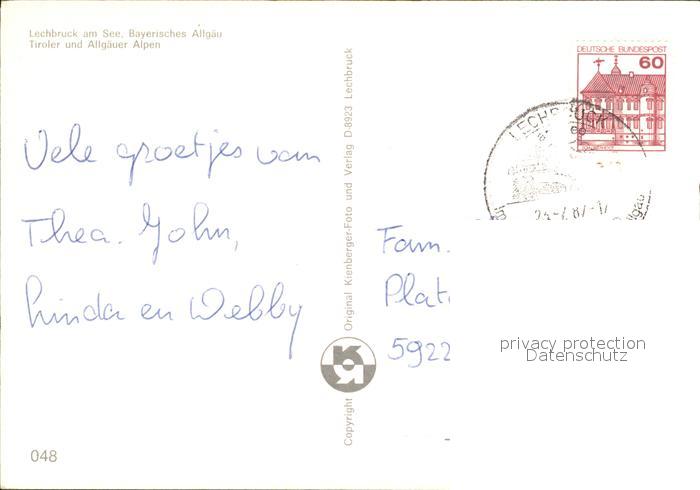 Lechbruck am See, Bayerisches Allgäu
Tiroler und Allgäuer Alpen
Vele groetjes van
Thea. John,
Linda en Webby
048
Copyright Original Kienberger-Foto und Verlag D-8923 Lechbruck
DEUTSCHE BUNDESPOST
60
LECHBRUCK
Fam.
Plat
5922
privacy protection
Datenschutz